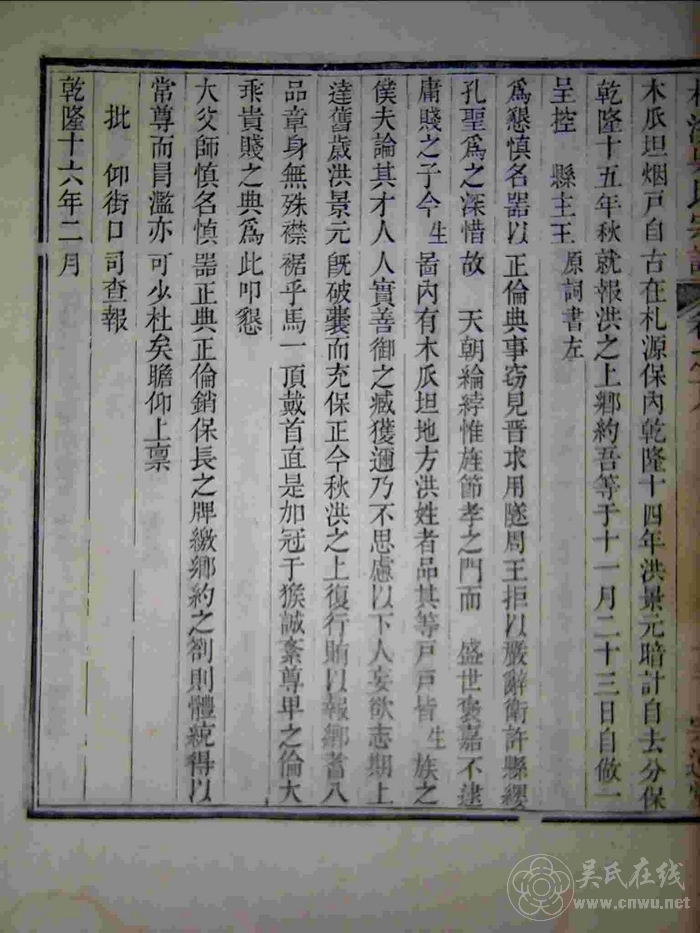 木瓜坦烟戶自古在札源保內乾隆十四年洪景元暗計自去分保
乾隆十五年秋就報洪之上鄉約吾等于十一月二十三日自做一
呈控 縣主王 原詞書左
爲懇慎名器以正倫典事窃見晋求用隧周王拒以嚴辭衛許縣纓
孔聖爲之深惜故 天朝綸綍惟旌節孝之門而 盛世褒嘉不逮
庸賤之子今生啚內有木瓜坦地方洪姓者品其等戶戶皆生族之
僕夫論其才人人實善御之臧獲邇乃不思慮以下人妄欲志期上
達舊歲洪景元旣破嚢而充保正今秋洪之上復行賄以報鄉耆八
品章身無殊襟裾乎馬一頂戴首直是加冠于猴誠紊尊卑之倫大
乖貴賤之典爲此叩懇
大父師慎名慎器正典正倫銷保長之牌繳鄉約之劄則體統得以
常尊而冒濫亦可少杜矣瞻仰上稟
批 仰街口司查報
乾隆十六年二月
吴氏在线
www.cnwu.net